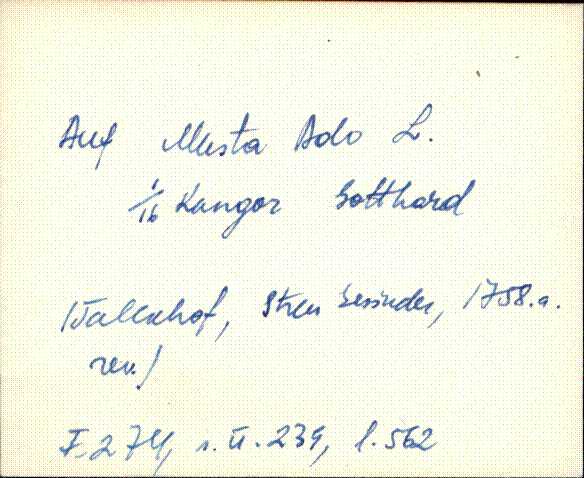 Auf Musta Ado L.
1/16 Kangor Gotthard
(Valckhof, Streu Gesinder, 1758.a.
rev.)
F. 274, n. ü. 239, l. 562